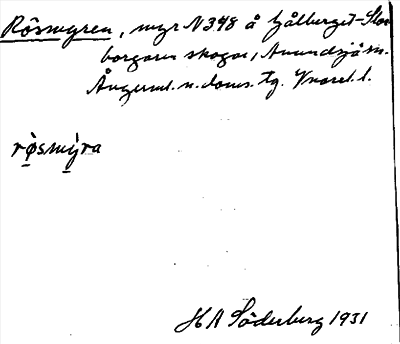 Rösmyren, myr N 348 å Hjälberget-Stor
borgares skogar, Anundsjö sn.
Ångerml. n. doms. tg. Vnorrl. l.
rø̀smỳra
H A Söderberg 1931